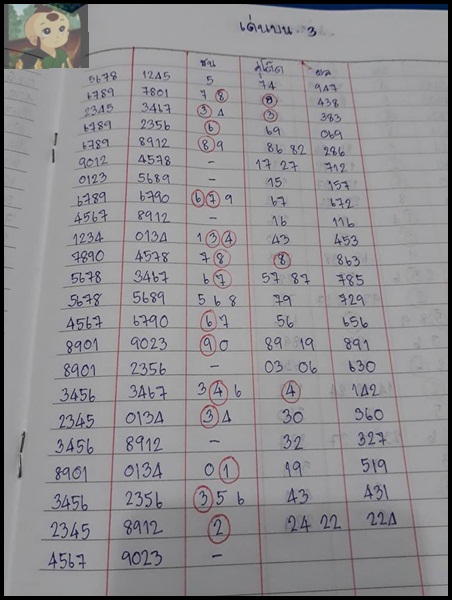 เด่นบน 3
ชน สูติด ผล
5678 1245 5 74 947
6789 7801 7 8 8 438
2345 3467 3 4 3 383
6789 2356 6 69 069
6789 8912 8 9 86 82 286
9012 4578 - 17 27 712
0123 5689 - 15 157
6789 6790 6 7 9 67 672
4567 8912 - 16 116
1234 0134 1 3 4 43 453
7890 4578 7 8 8 863
5678 3467 6 7 57 87 785
5678 5689 5 6 8 79 729
4567 6790 6 7 56 656
8901 9023 9 0 89 19 891
8901 2356 - 03 06 630
3456 3467 3 4 6 4 142
2345 0134 3 4 30 360
3456 8912 - 32 327
8901 0134 0 1 19 519
3456 2356 3 5 6 43 431
2345 8912 2 24 22 224
4567 9023 -